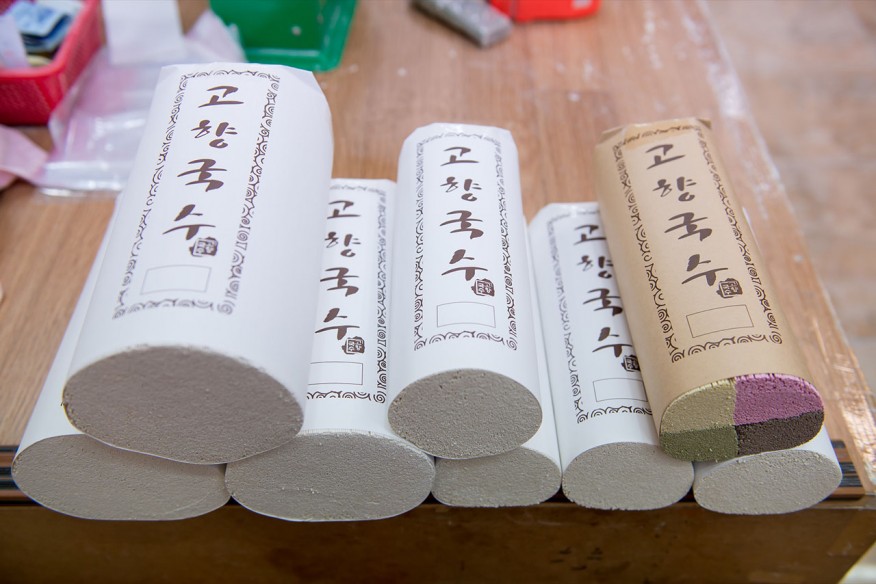 고향국수
고향국수
고향국수
고향국수
고향국수